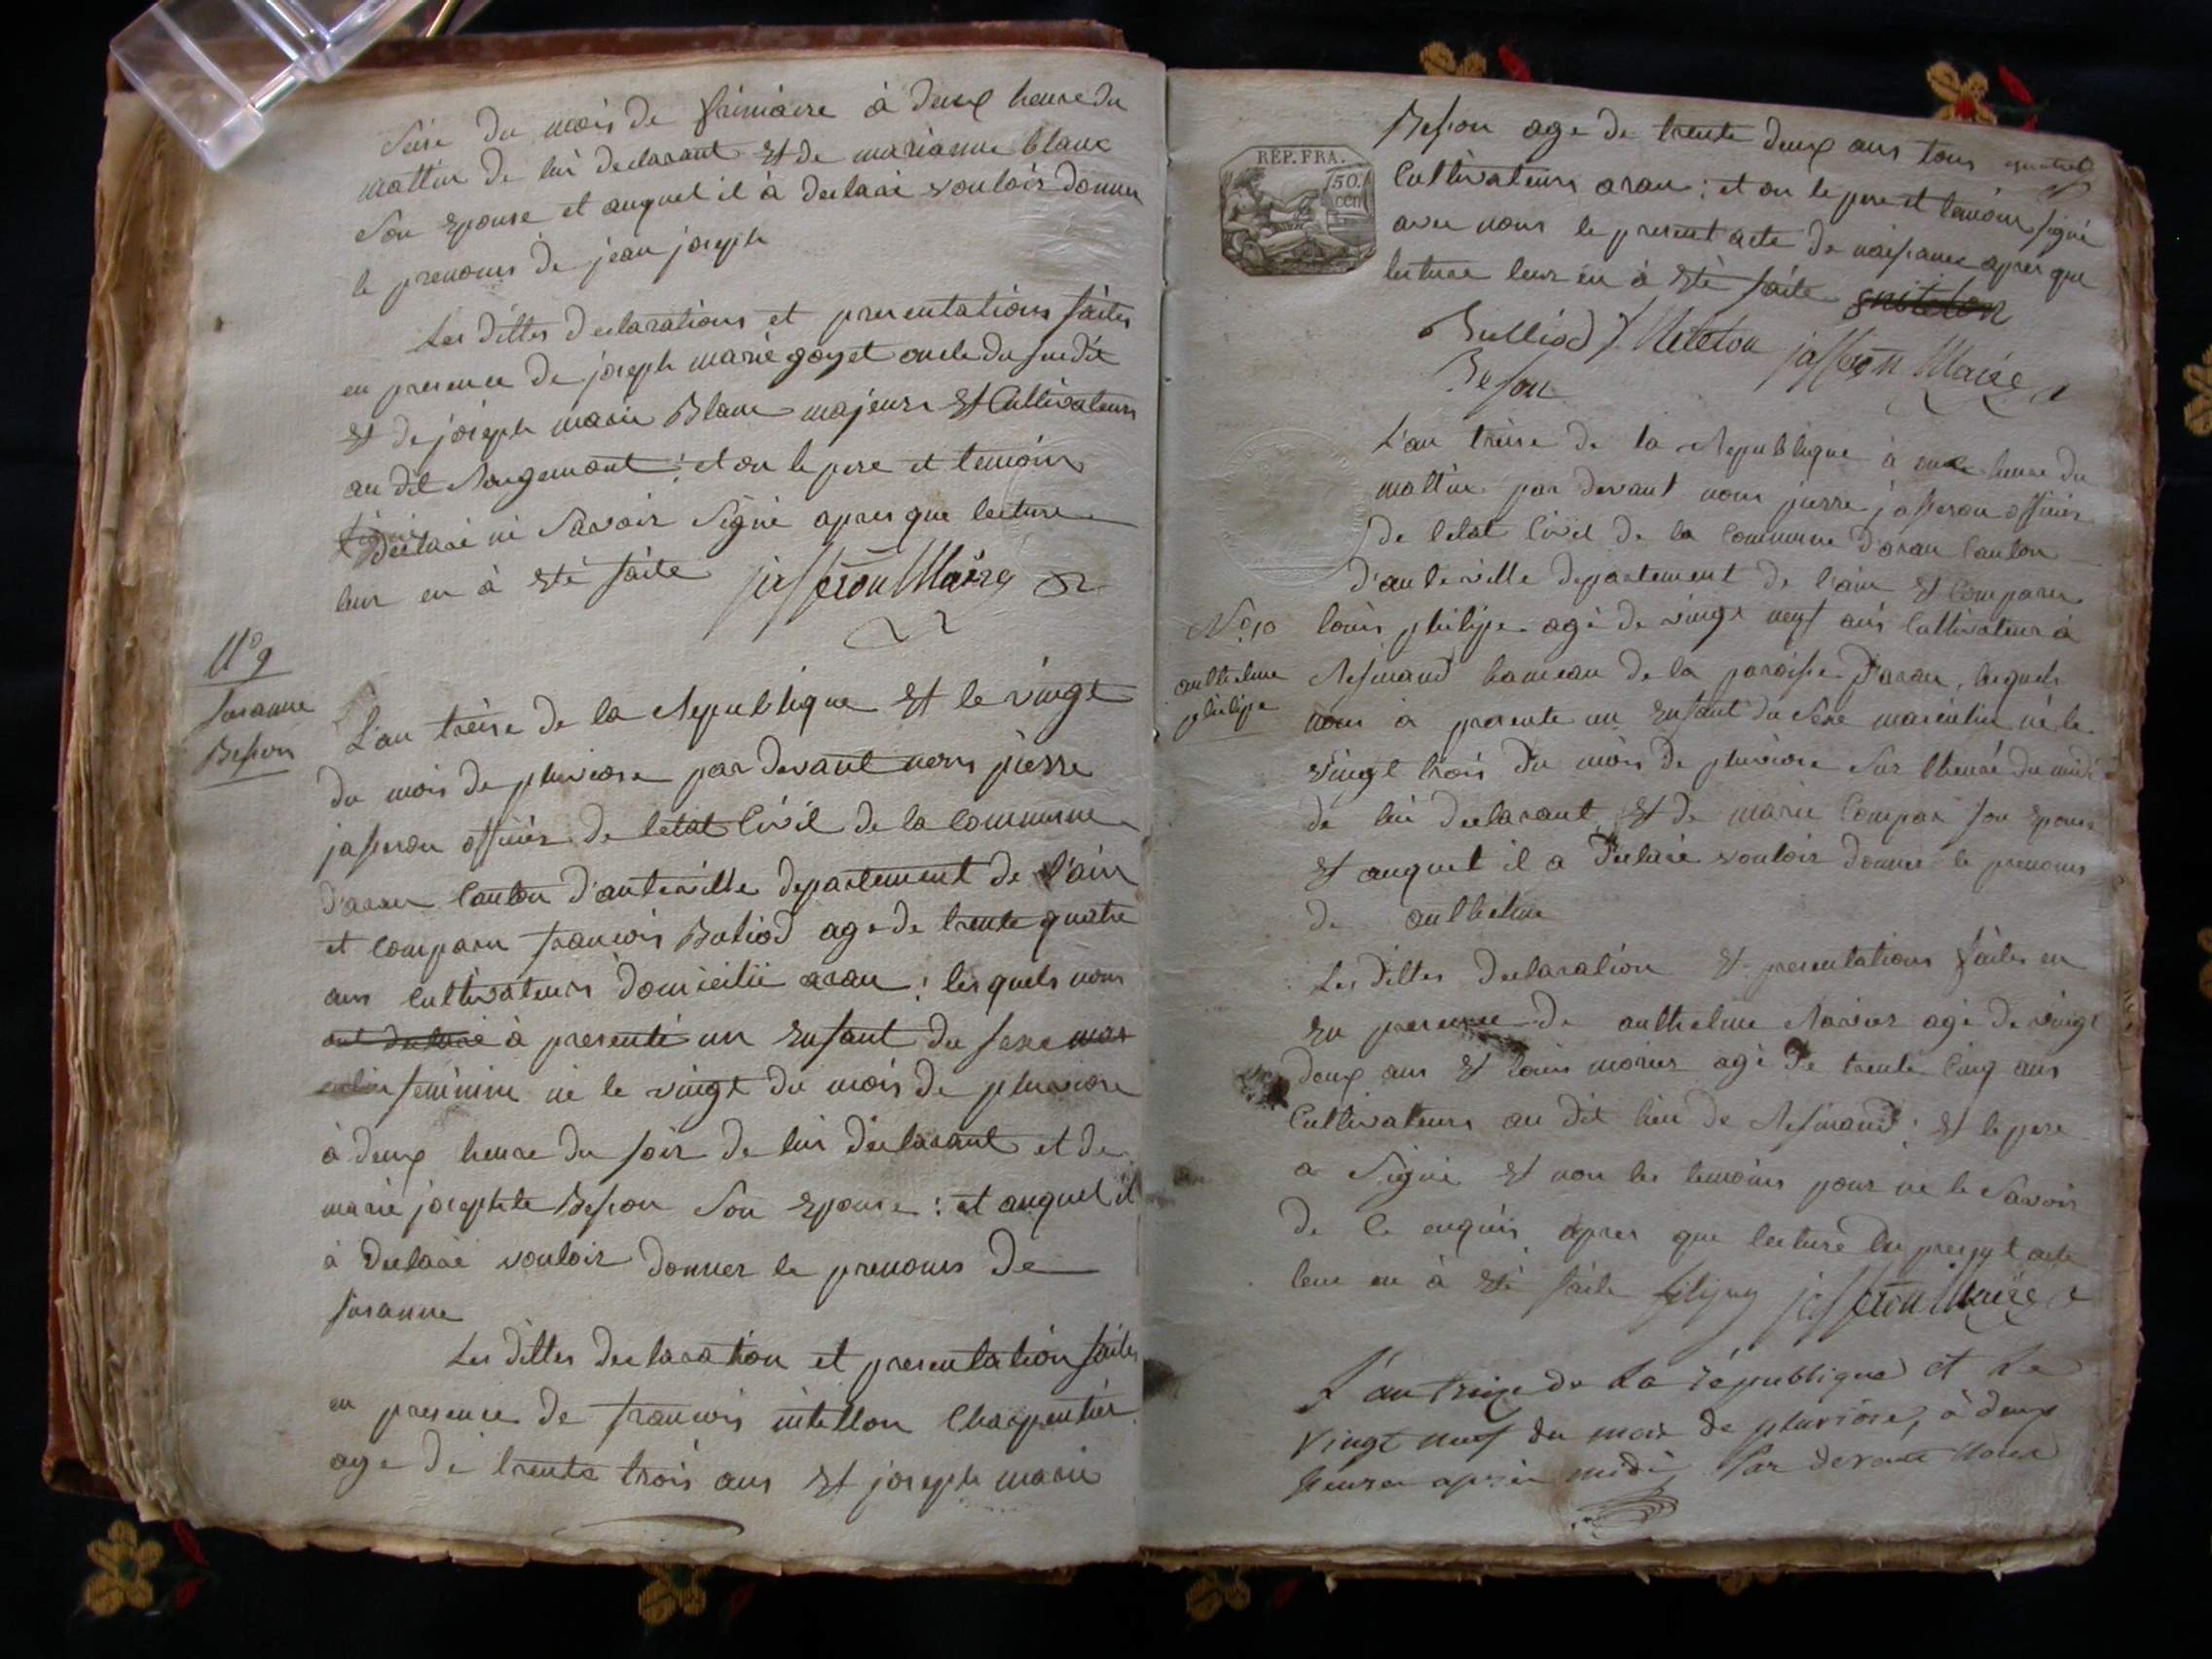 seise du mois de frimaire à deux heure du
mattin de lui declarant et de marianne blanc
son epouse et auquel il à declaré vouloir donner
le prenoms de jean joseph
Les dittes declarations et presentations faites
en presence de joseph marie goyet oncle du susdit
et de joseph marie Blanc majeurs et Cultivateurs
au dit Rougemont; et on le pere et temoins
declaré ne savoir signé apres que lecture
leur en à été faite jasseron Maire
N° 9
susanne
Besson
L'an treise de la Republique et le vingt
du mois de pluviose par devant nous pierre
jasseron officier de letat Civil de la commune
d'aran Canton d'auteville departement de l'ain
et comparu francois Butiod age de trente quatre
ans cultivateurs domicilié aran; lesquels nous
ont declaré à presenté un enfant du sexe mas
culin feminin né le vingt du mois de pluviose
à deux heure du soir de lui declarant et de
marie josephte Besson son epouse: et auquel il
à declaré vouloir donner le prenoms de
susanne
Les dittes declaration et presentation faites
en presence de francois nitellon Charpentier
age de trente trois ans et joseph marie
REP. FRA.
50
cen
Besson age de trente deux ans tous
Cultivateurs aran; et on le pere et temoins signé
avec nous le present acte de naissance apres que
lecture leur en à été faite
Bulliod Niteton jasseron Maire
Beson
L'an treise de la Republique à heure du
mattin par devant nous pierre jasseron officier
de letat Civil de la commune d'aran Canton
d'auteville departement de l'ain et comparu
N° 10
anthelme
philipe
louis philipe agé de vingt neuf ans Cultivateur à
Resinand hameau de la paroisse d'aran, lesquels
nous à presenté un enfant du sexe masculin né le
vingt trois du mois de pluviose sur lheure du midi
de lui declarant, et de marie Compar son epouse
et auquel il a declaré vouloir donner le prenoms
de anthelme
Les dittes declaration et presentations faites en
en presence de anthelme Ravier agé de vingt
deux ans et louis morier agé de trente cinq ans
Cultivateurs au dit lieu de Resinand; et le pere
a signé et non les temoins pour ne le savoir
de ce enquis apres que lecture du present acte
leur en à été faite filipuy jasseron Maire
L'an treize de La république et Le
vingt neuf du mois de pluviose, à deux
heures après midi, Par devant Nous